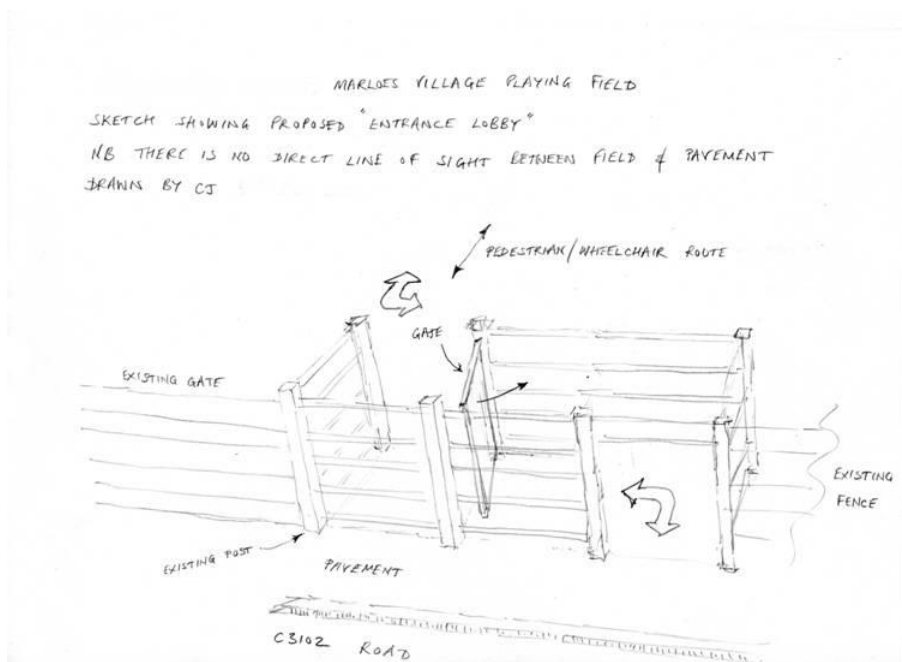 MARLOES VILLAGE PLAYING FIELD
SKETCH SHOWING PROPOSED "ENTRANCE LOBBY"
NB THERE IS NO DIRECT LINE OF SIGHT BETWEEN FIELD & PAVEMENT
DRAWN BY CJ
PEDESTRIAN/WHEELCHAIR ROUTE
GATE
EXISTING GATE
EXISTING
FENCE
EXISTING POST
PAVEMENT
C3102 ROAD